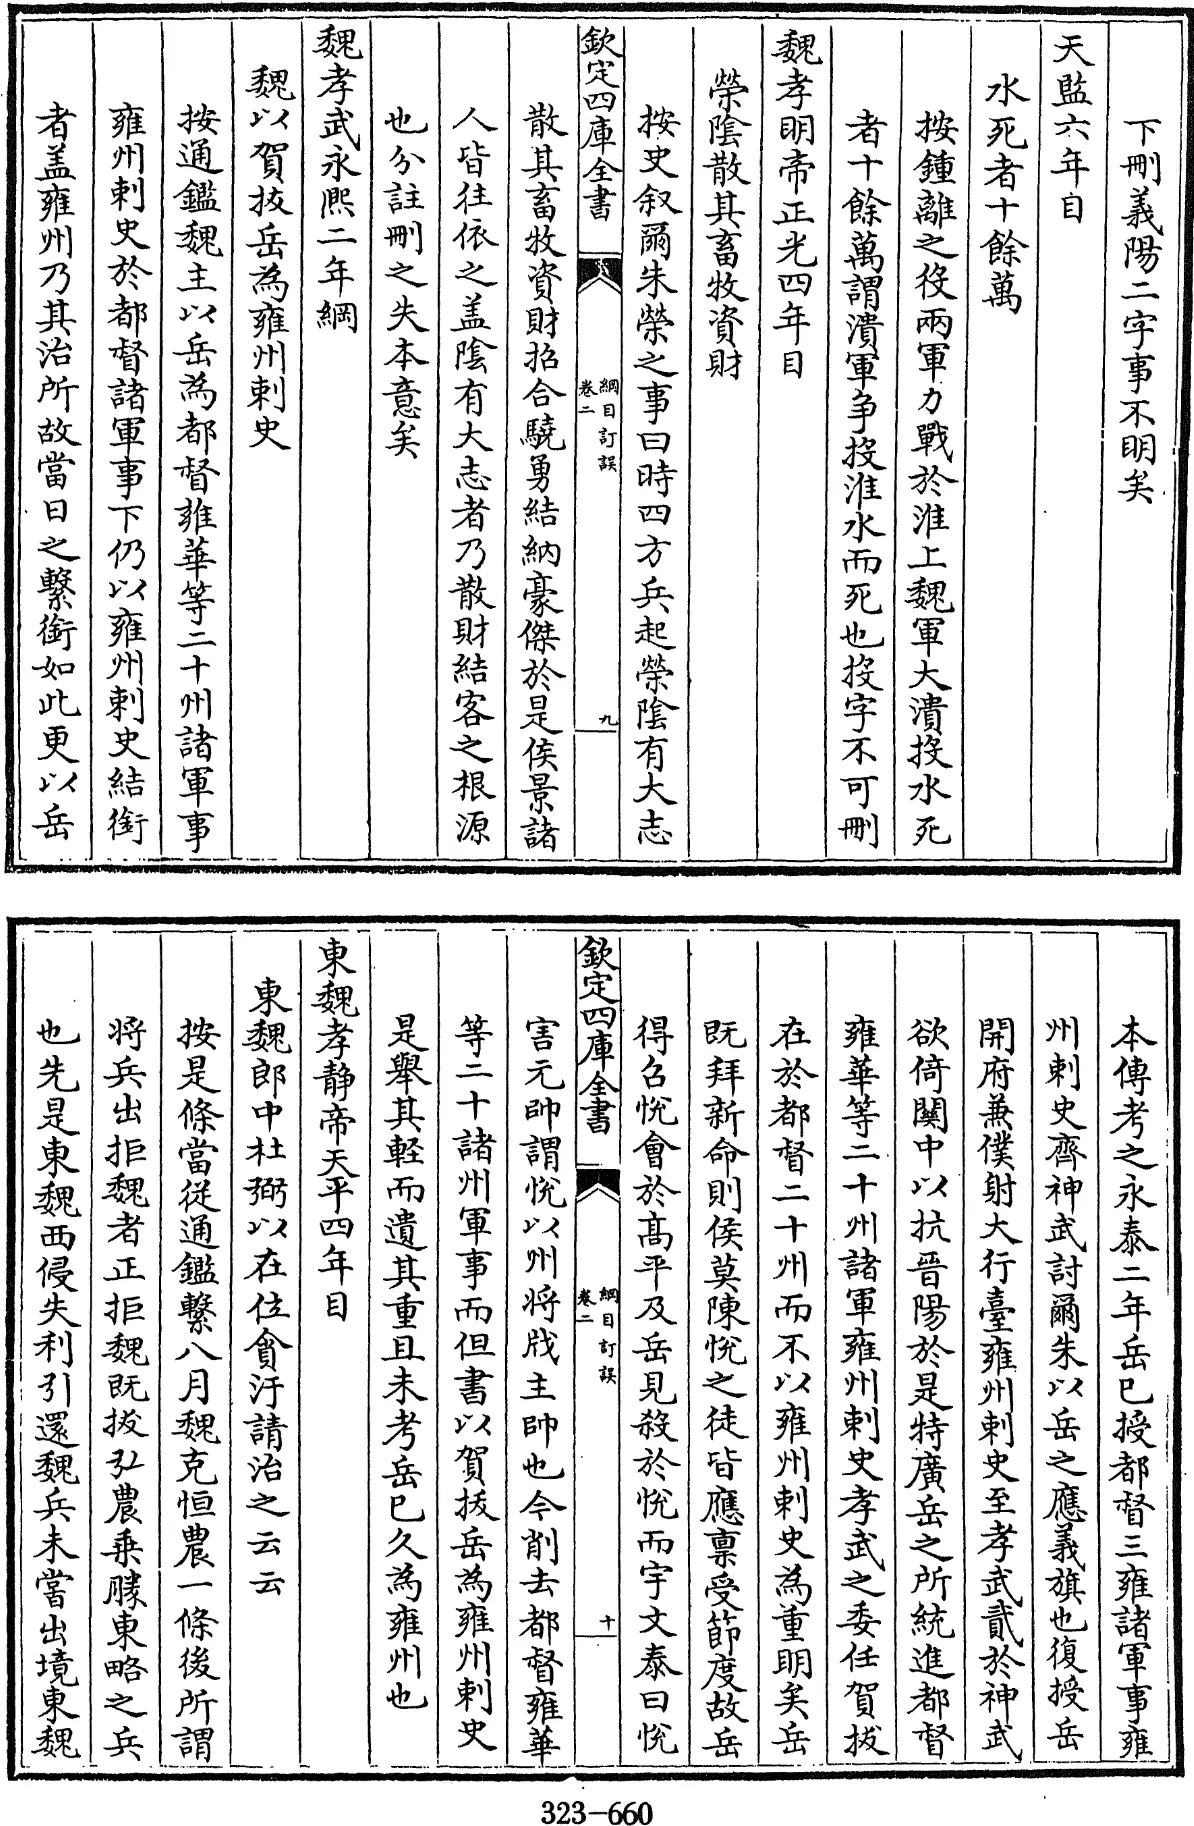 下刪義陽二字事不明矣
天監六年目
水死者十餘萬
按鍾離之役兩軍力戰於淮上魏軍大潰投水死
者十餘萬謂潰軍争投淮水而死也投字不可刪
魏孝明帝正光四年目
榮陰散其畜牧資財
按史叙爾朱榮之事曰時四方兵起榮陰有大志
欽定四庫全書
綱目訂誤
卷二
九
散其畜牧資財招合驍勇結納豪傑於是侯景諸
人皆往依之盖陰有大志者乃散財結客之根源
也分註刪之失本意矣
魏孝武永熙二年綱
魏以賀拔岳為雍州刺史
按通鑑魏主以岳為都督雍華等二十州諸軍事
雍州刺史於都督諸軍事下仍以雍州刺史結銜
者盖雍州乃其治所故當日之繫銜如此更以岳
本傳考之永泰二年岳已授都督三雍諸軍事雍
州刺史齊神武討爾朱以岳之應義旗也復授岳
開府兼僕射大行臺雍州刺史至孝武貳於神武
欲倚關中以抗晉陽於是特廣岳之所統進都督
雍華等二十州諸軍雍州刺史孝武之委任賀拔
在於都督二十州而不以雍州刺史為重明矣岳
既拜新命則侯莫陳悅之徒皆應禀受節度故岳
得召悅會於高平及岳見殺於悅而宇文泰曰悅
欽定四庫全書
綱目訂誤
卷二
十
害元帥謂悅以州将戕主帥也今削去都督雍華
等二十諸州軍事而但書以賀拔岳為雍州刺史
是舉其軽而遺其重且未考岳已久為雍州也
東魏孝静帝天平四年目
東魏郎中杜弼以在位貪汙請治之云云
按是條當從通鑑繫八月魏克恒農一條後所謂
将兵出拒魏者正拒魏既拔弘農乗勝東略之兵
也先是東魏西侵失利引還魏兵未嘗出境東魏
323-660